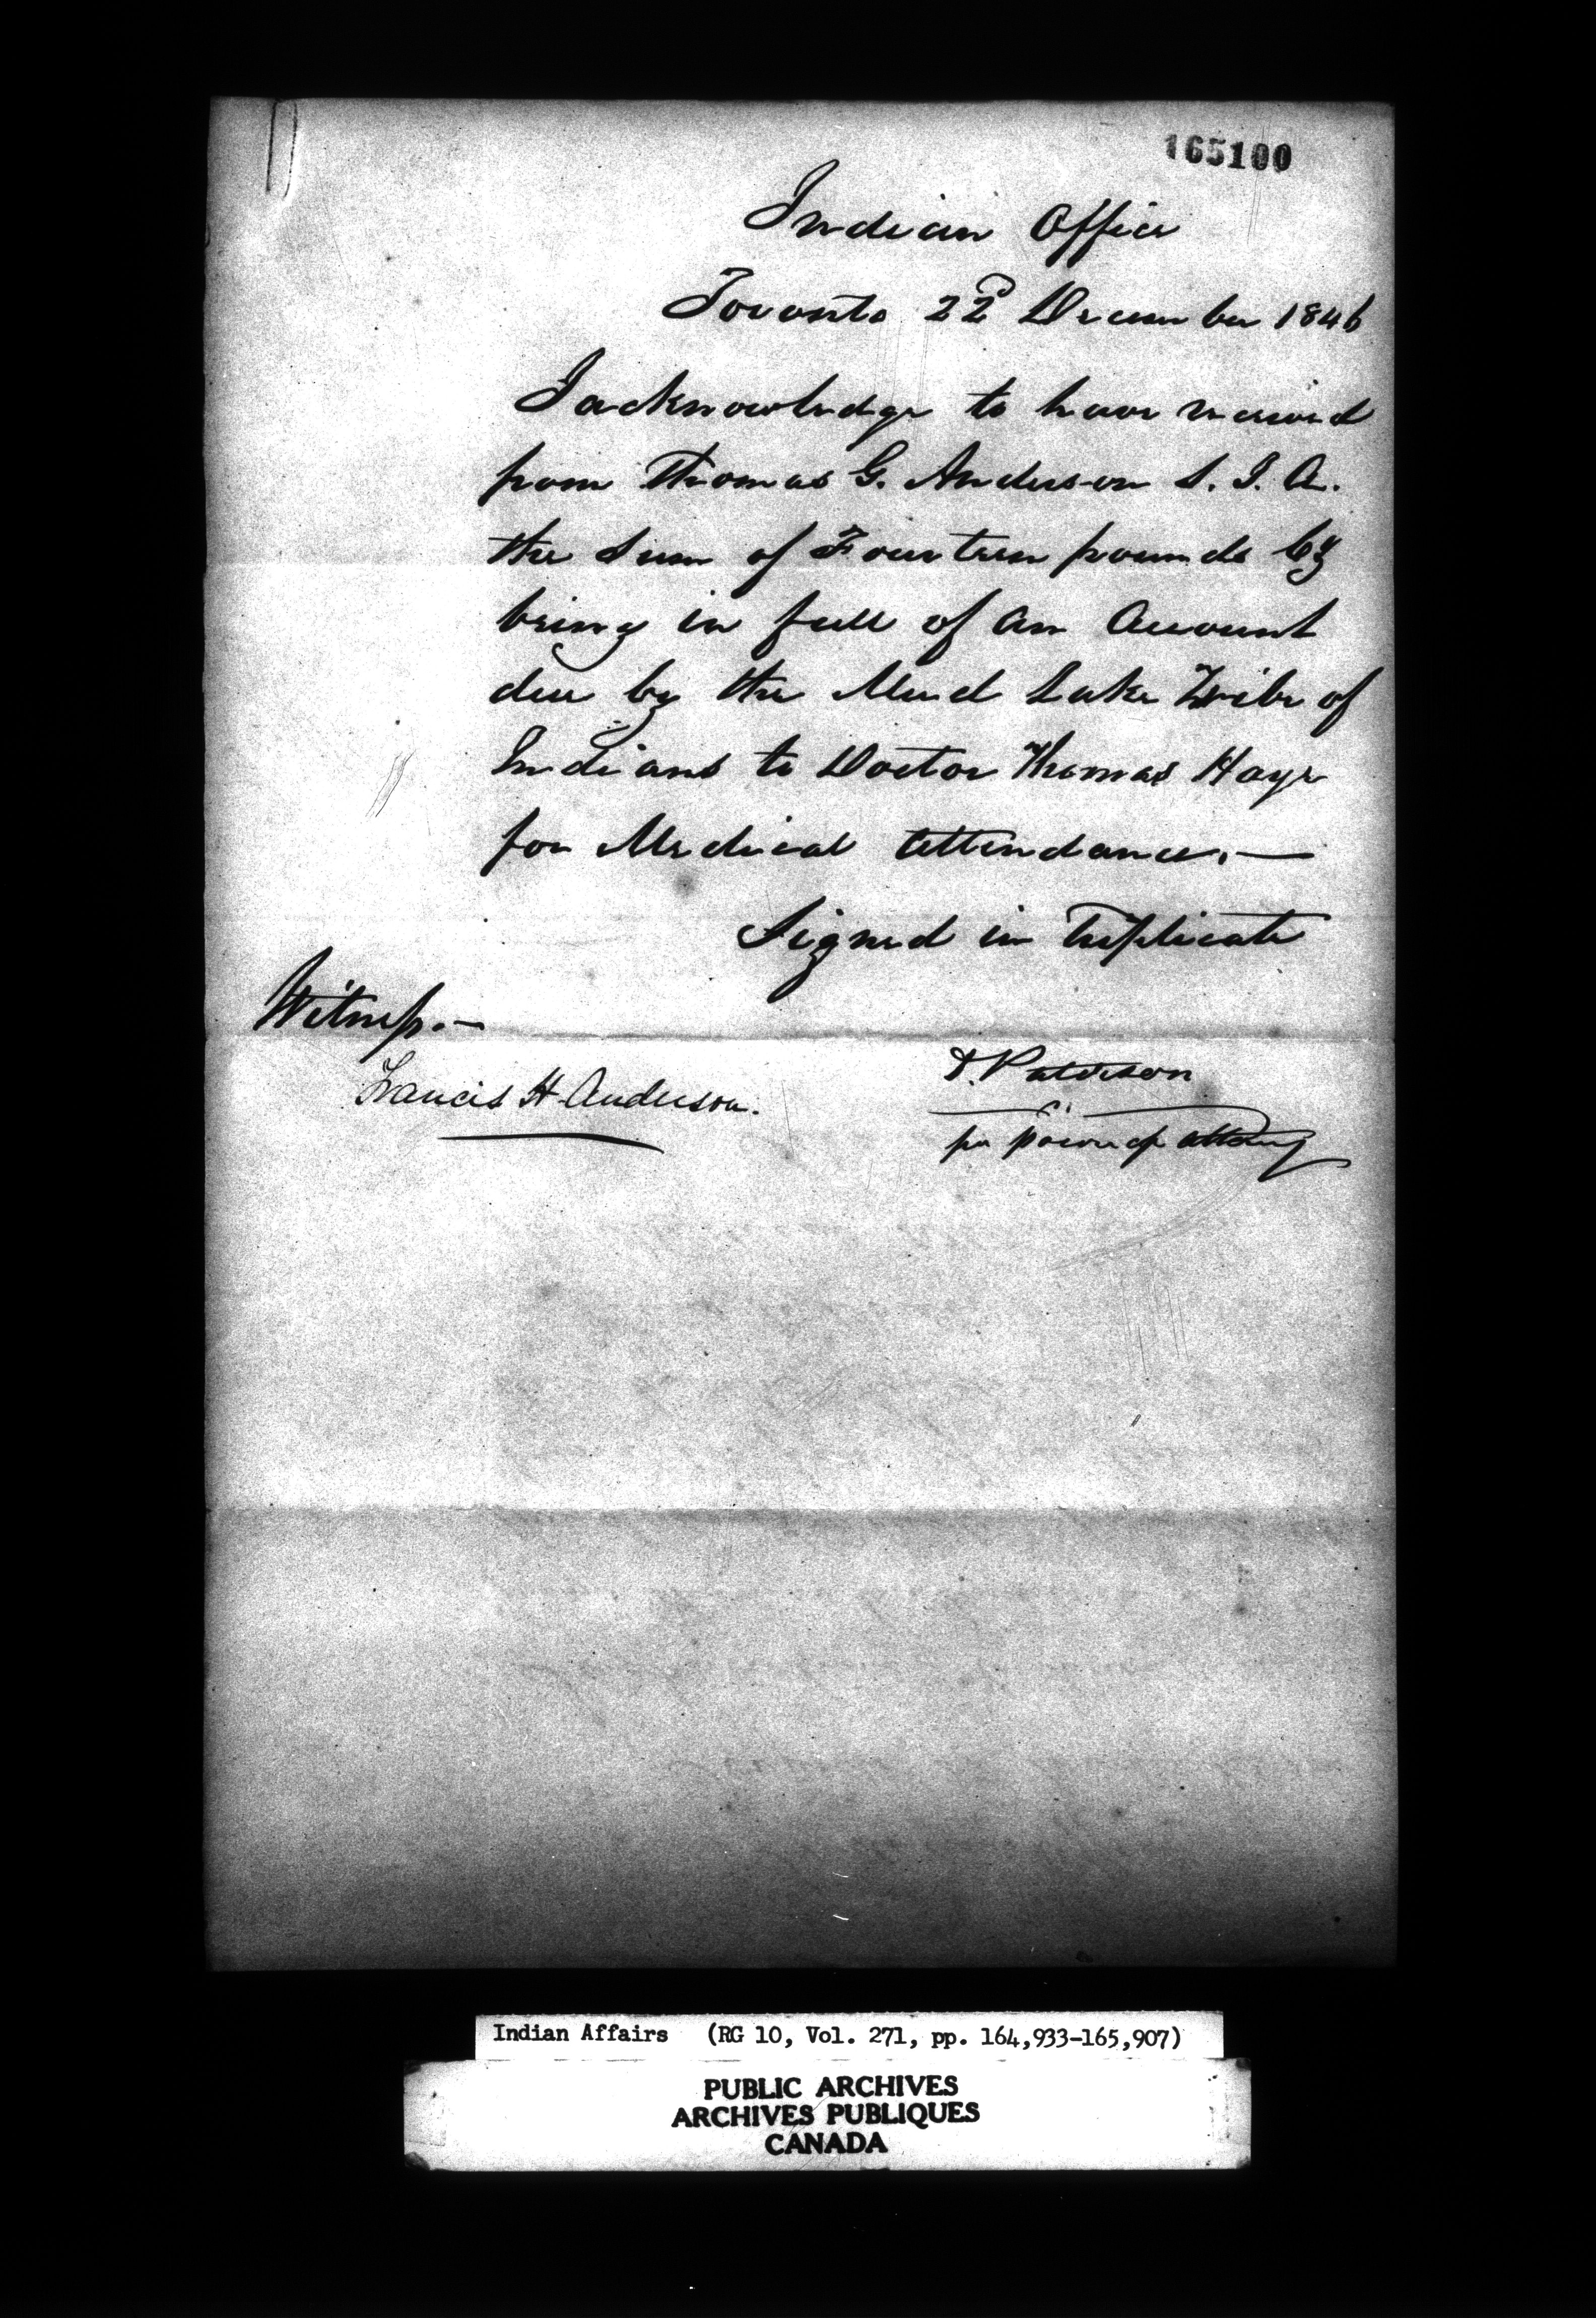 165100
Indian Office
Toronto 22d December 1846
I acknowledge to have received
from Thomas G. Anderson S. I. A.
the Sum of Fourteen pounds Cy
being in full of an Account
due by the Mud Lake Tribe of
Indians to Doctor Thomas Haye
for Medical Attendance.—
Signed in Triplicate
Witness.—
Francis H Anderson.
T. Paterson
per power of attorney
Indian Affairs (RG 10, Vol. 271, pp. 164,933-165,907)
PUBLIC ARCHIVES
ARCHIVES PUBLIQUES
CANADA